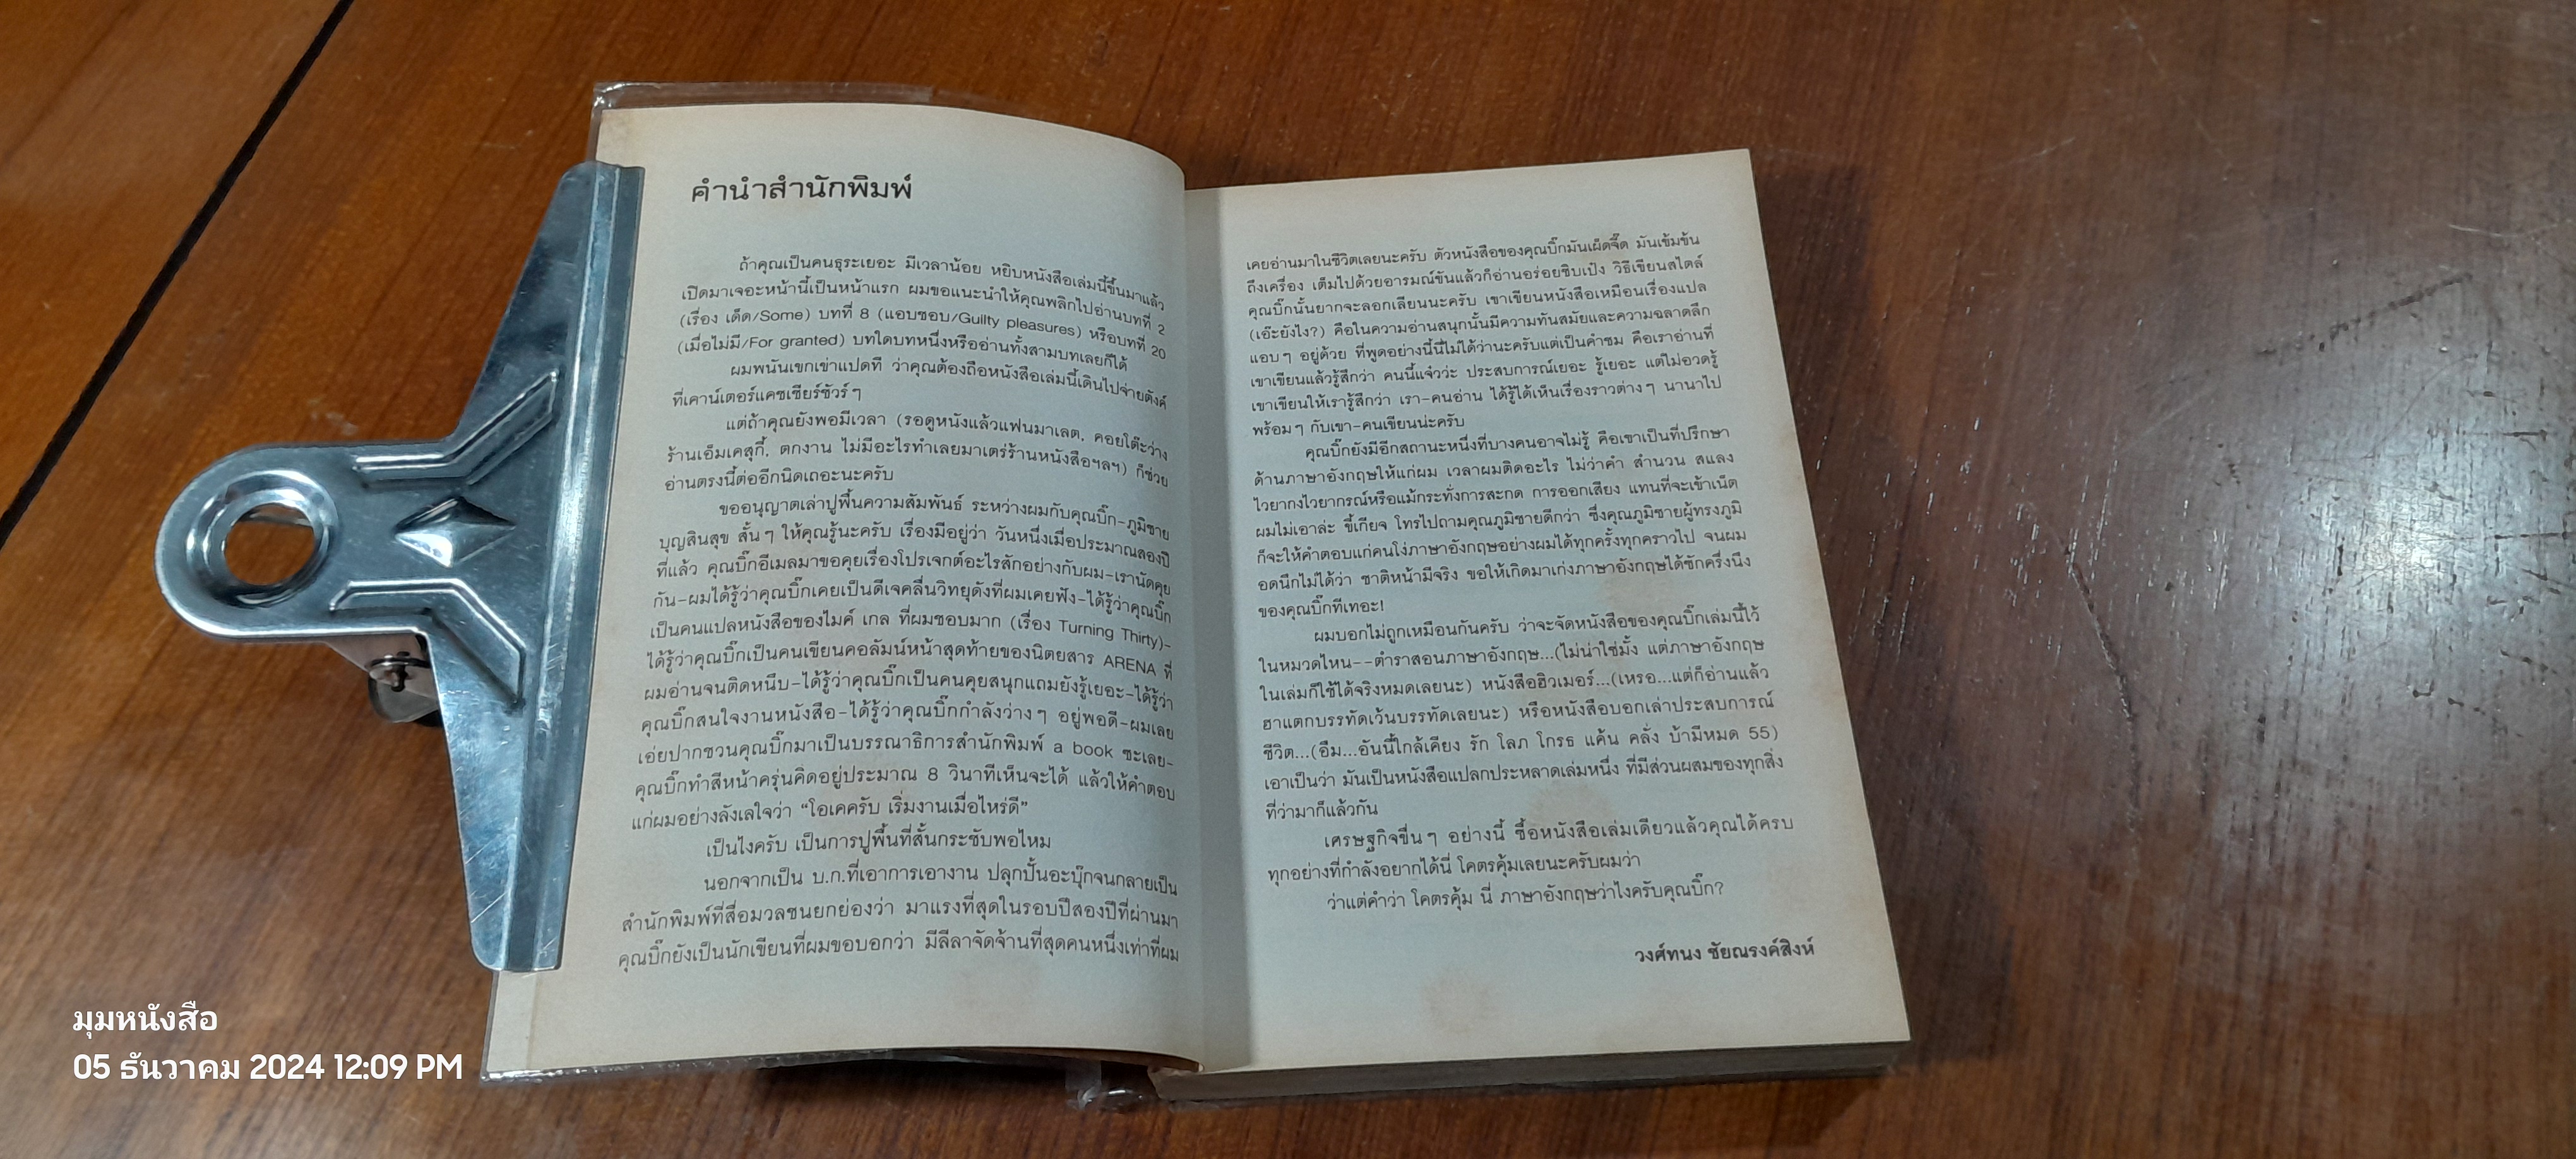 คำนำสำนักพิมพ์
ถ้าคุณเป็นคนธุระเยอะ มีเวลาน้อย หยิบหนังสือเล่มนี้ขึ้นมาแล้ว
เปิดมาเจอะหน้านี้เป็นหน้าแรก ผมขอแนะนำให้คุณพลิกไปอ่านบทที่ 2
(เรื่อง เด็ด/Some) บทที่ 8 (แอบชอบ/Guilty pleasures) หรือบทที่ 20
(เมื่อไม่มี/For granted) บทใดบทหนึ่งหรืออ่านทั้งสามบทเลยก็ได้
ผมพนันเขกเข่าแปดที ว่าคุณต้องถือหนังสือเล่มนี้เดินไปจ่ายตังค์
ที่เคาน์เตอร์แคชเชียร์ชัวร์ๆ
แต่ถ้าคุณยังพอมีเวลา (รอดูหนังแล้วแฟนมาเลต, คอยโต๊ะว่าง
ร้านเอ็มเคสุกี้, ตกงาน ไม่มีอะไรทำเลยมาเตร่ร้านหนังสือฯลฯ) ก็ช่วย
อ่านตรงนี้ต่ออีกนิดเถอะนะครับ
ขออนุญาตเล่าปูพื้นความสัมพันธ์ ระหว่างผมกับคุณบิ๊ก-ภูมิชาย
บุญสินสุข สั้นๆ ให้คุณรู้นะครับ เรื่องมีอยู่ว่า วันหนึ่งเมื่อประมาณสองปี
ที่แล้ว คุณบิ๊กอีเมลมาขอคุยเรื่องโปรเจกต์อะไรสักอย่างกับผม-เรานัดคุย
กัน-ผมได้รู้ว่าคุณบิ๊กเคยเป็นดีเจคลื่นวิทยุดังที่ผมเคยฟัง-ได้รู้ว่าคุณบิ๊ก
เป็นคนแปลหนังสือของไมค์ เกล ที่ผมชอบมาก (เรื่อง Turning Thirty)-
ได้รู้ว่าคุณบิ๊กเป็นคนเขียนคอลัมน์หน้าสุดท้ายของนิตยสาร ARENA ที่
ผมอ่านจนติดหนึบ-ได้รู้ว่าคุณบิ๊กเป็นคนคุยสนุกแถมยังรู้เยอะ-ได้รู้ว่า
คุณบิ๊กสนใจงานหนังสือ-ได้รู้ว่าคุณบิ๊กกำลังว่างๆ อยู่พอดี-ผมเลย
เอ่ยปากชวนคุณบิ๊กมาเป็นบรรณาธิการสำนักพิมพ์ a book ซะเลย-
คุณบิ๊กทำสีหน้าครุ่นคิดอยู่ประมาณ 8 วินาทีเห็นจะได้ แล้วให้คำตอบ
แก่ผมอย่างลังเลใจว่า “โอเคครับ เริ่มงานเมื่อไหร่ดี”
เป็นไงครับ เป็นการปูพื้นที่สั้นกระชับพอไหม
นอกจากเป็น บ.ก.ที่เอาการเอางาน ปลุกปั้นอะบุ๊กจนกลายเป็น
สำนักพิมพ์ที่สื่อมวลชนยกย่องว่า มาแรงที่สุดในรอบปีสองปีที่ผ่านมา
คุณบิ๊กยังเป็นนักเขียนที่ผมขอบอกว่า มีลีลาจัดจ้านที่สุดคนหนึ่งเท่าที่ผม
เคยอ่านมาในชีวิตเลยนะครับ ตัวหนังสือของคุณบิ๊กมันเผ็ดจี๊ด มันเข้มข้น
ถึงเครื่อง เต็มไปด้วยอารมณ์ขันแล้วก็อ่านอร่อยชิบเป๋ง วิธีเขียนสไตล์
คุณบิ๊กนั้นยากจะลอกเลียนนะครับ เขาเขียนหนังสือเหมือนเรื่องแปล
(เอ๊ะยังไง?) คือในความอ่านสนุกนั้นมีความทันสมัยและความฉลาดลึก
แอบๆ อยู่ด้วย ที่พูดอย่างนี้นี่ไม่ได้ว่านะครับแต่เป็นคำชม คือเราอ่านที่
เขาเขียนแล้วรู้สึกว่า คนนี้แจ๋วว่ะ ประสบการณ์เยอะ รู้เยอะ แต่ไม่อวดรู้
เขาเขียนให้เรารู้สึกว่า เรา-คนอ่าน ได้รู้ได้เห็นเรื่องราวต่างๆ นานาไป
พร้อมๆ กับเขา-คนเขียนน่ะครับ
คุณบิ๊กยังมีอีกสถานะหนึ่งที่บางคนอาจไม่รู้ คือเขาเป็นที่ปรึกษา
ด้านภาษาอังกฤษให้แก่ผม เวลาผมติดอะไร ไม่ว่าคำ สำนวน สแลง
ไวยากงไวยากรณ์หรือแม้กระทั่งการสะกด การออกเสียง แทนที่จะเข้าเน็ต
ผมไม่เอาล่ะ ขี้เกียจ โทรไปถามคุณภูมิชายดีกว่า ซึ่งคุณภูมิชายผู้ทรงภูมิ
ก็จะให้คำตอบแก่คนโง่ภาษาอังกฤษอย่างผมได้ทุกครั้งทุกคราวไป จนผม
อดนึกไม่ได้ว่า ชาติหน้ามีจริง ขอให้เกิดมาเก่งภาษาอังกฤษได้ซักครึ่งนึง
ของคุณบิ๊กทีเทอะ!
ผมบอกไม่ถูกเหมือนกันครับ ว่าจะจัดหนังสือของคุณบิ๊กเล่มนี้ไว้
ในหมวดไหน--ตำราสอนภาษาอังกฤษ...(ไม่น่าใช่มั้ง แต่ภาษาอังกฤษ
ในเล่มก็ใช้ได้จริงหมดเลยนะ) หนังสือฮิวเมอร์...(เหรอ...แต่ก็อ่านแล้ว
ฮาแตกบรรทัดเว้นบรรทัดเลยนะ) หรือหนังสือบอกเล่าประสบการณ์
ชีวิต...(อืม...อันนี้ใกล้เคียง รัก โลภ โกรธ แค้น คลั่ง บ้ามีหมด 55)
เอาเป็นว่า มันเป็นหนังสือแปลกประหลาดเล่มหนึ่ง ที่มีส่วนผสมของทุกสิ่ง
ที่ว่ามาก็แล้วกัน
เศรษฐกิจขื่นๆ อย่างนี้ ซื้อหนังสือเล่มเดียวแล้วคุณได้ครบ
ทุกอย่างที่กำลังอยากได้นี่ โคตรคุ้มเลยนะครับผมว่า
ว่าแต่คำว่า โคตรคุ้ม นี่ ภาษาอังกฤษว่าไงครับคุณบิ๊ก?
วงศ์ทนง ชัยณรงค์สิงห์
มุมหนังสือ
05 ธันวาคม 2024 12:09 PM